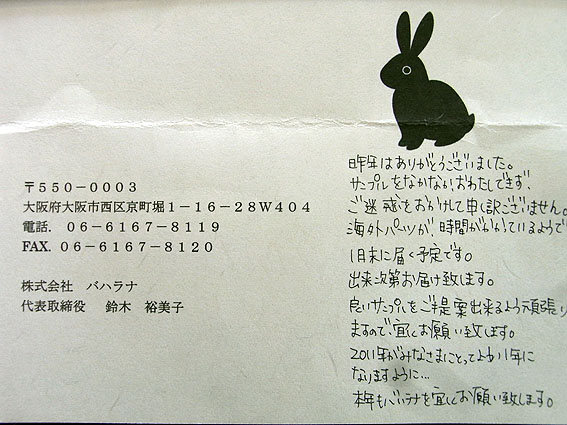 〒550-0003
大阪府大阪市西区京町堀1-16-28W404
電話. 06-6167-8119
FAX. 06-6167-8120
株式会社 バハラナ
代表取締役 鈴木 裕美子
昨年はありがとうございました。
サンプルをなかなかおわたしできず、
ご迷惑をおかけして申し訳ございません。
海外パーツが、時間がかかているようで
1月末に届く予定です。
出来次第お届け致します。
良いサンプルをご提案出来るよう頑張り
ますので、宜しくお願い致します。
2011年がみなさまにとってよい1年に
なりますように…
本年もバハラナを宜しくお願い致します。